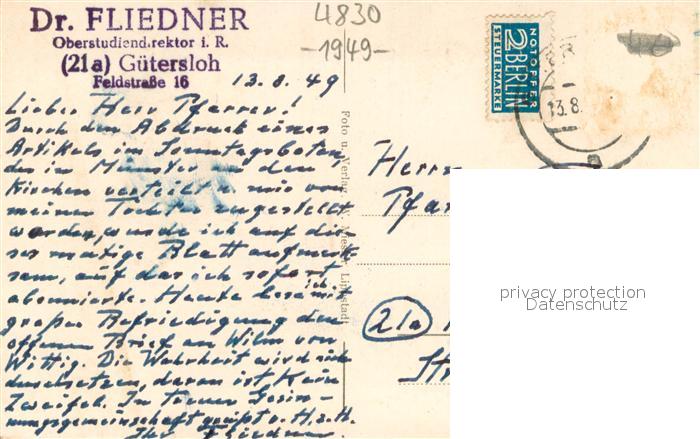 Dr. FLIEDNER
Oberstudiendirektor i. R.
(21a) Gütersloh
Feldstraße 16
4830
-1949-
13.8.49
Lieber Herr Pfarrer!
Durch den Abdruck eines
Artikels im Sonntagsboten,
der in Münster in den
Kirchen verteilt u. mir von
meiner Tochter zugestellt
worden, wurde ich auf die-
ses mutige Blatt aufmerk-
sam, auf das ich sofort
abonnierte. Heute lese ich mit
großer Befriedigung den
offenen Brief an Wilm von
Wittig. Die Wahrheit wird sich
durchsetzen, daran ist kein
Zweifel. In treuer Gesin-
nungsgemeinschaft grüßt v. H. z. H.
Ihr Fliedner
Foto u. Verlag W. Lippstadt
NOTOPFER
2 BERLIN
STEUERMARKE
13.8.
Herrn
Pfar
21a
Str
privacy protection
Datenschutz